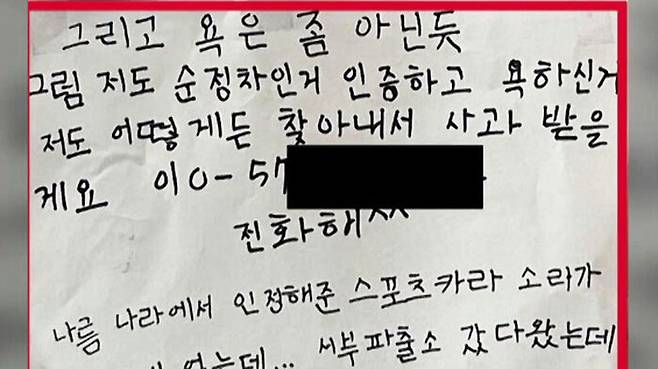 그리고 욕은 좀 아닌듯
그럼 저도 순정차인거 인증하고 욕하신거
저도 어떻게든 찾아내서 사과 받을
게요 010-57
진화해
나름 나라에서 인정해준 스포츠카라 소리가
는데... 서부파출소 갔다왔는데